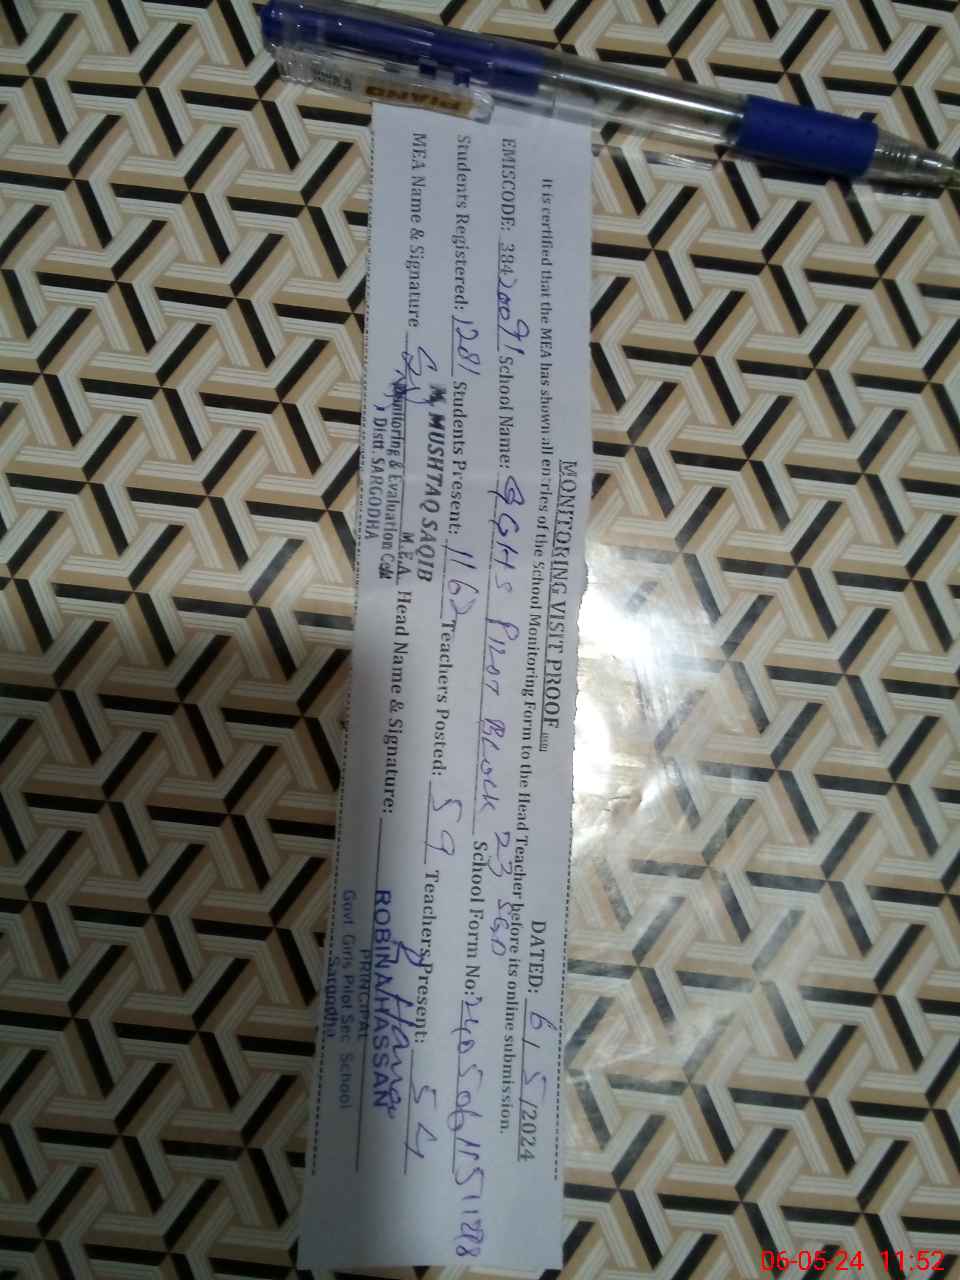 MONITORING VISIT PROOF
DATED: 6/5/2024
It is certified that the MEA has shown all entries of the School Monitoring Form to the Head Teacher before its online submission.
EMISCODE: 38420091 School Name: GGHS PILOT BLOCK 23 SGD School Form No:
Students Registered: 1281 Students Present: 1162 Teachers Posted: 59 Teachers Present: 54
MEA Name & Signature Head Name & Signature:
M. MUSHTAQ SAQIB
M.E.A.
Monitoring & Evaluation Cell
Distt. SARGODHA
ROBINA HASSAN
PRINCIPAL
Govt Girls Pilot Sec School
Sargodha
PIANO
06-05-24 11:52